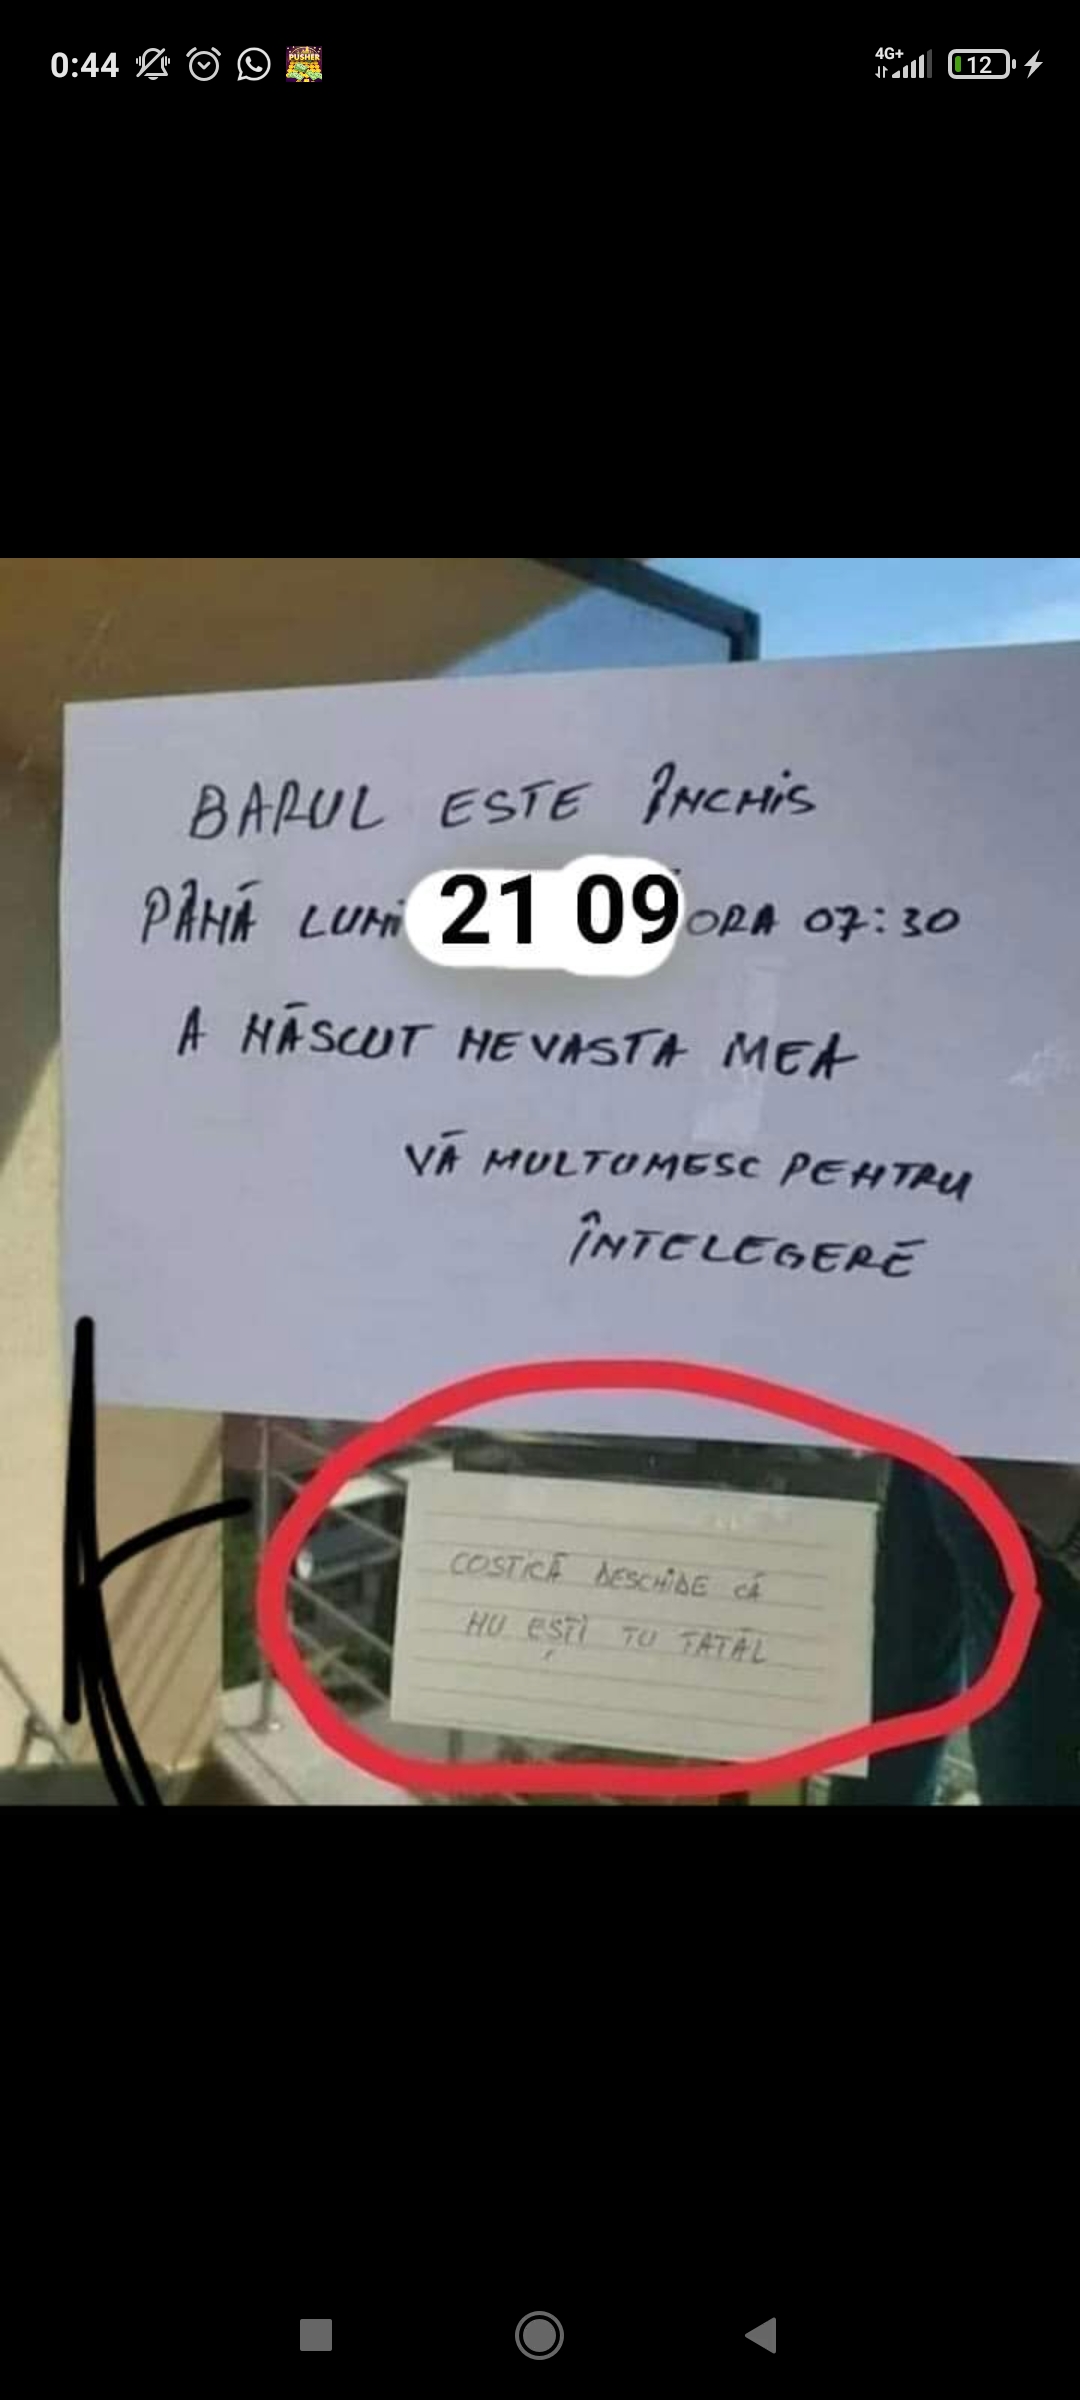 0:44
PUSHER
4G+
12
BARUL ESTE ÎNCHIS
PÂNĂ LUNI 21 09 ORA 07:30
A NĂSCUT NEVASTA MEA
VĂ MULTUMESC PENTRU
ÎNTELEGERE
COSTICĂ DESCHIDE CĂ
NU EȘTI TU TATĂL